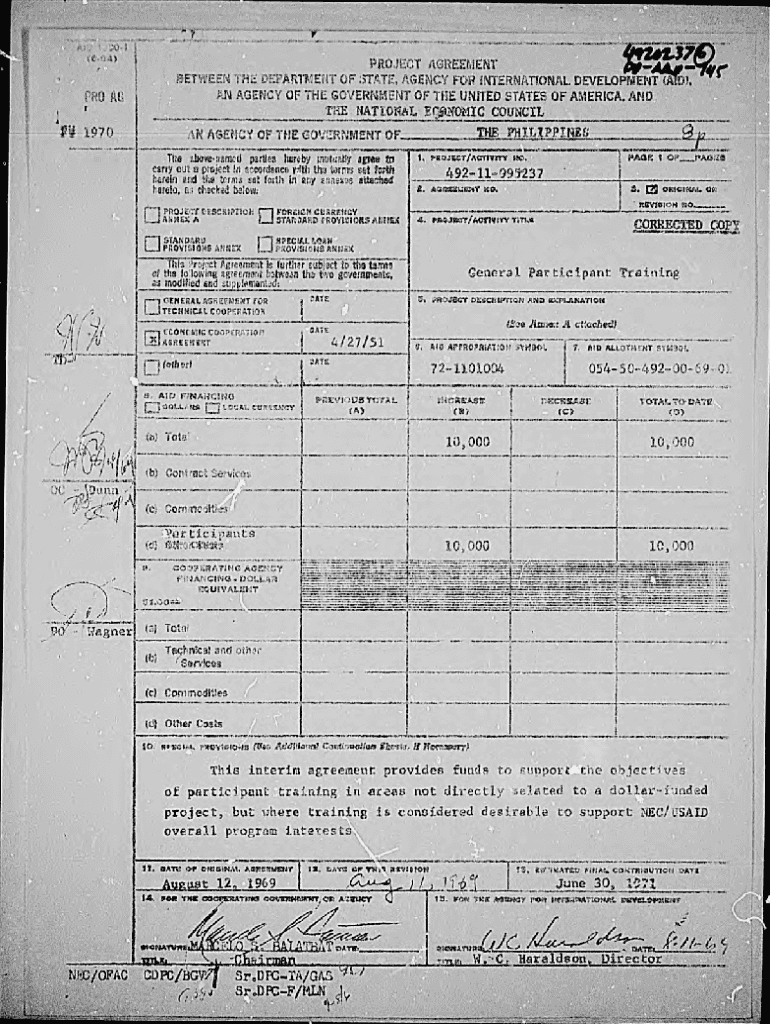 PROJECT AGREEMENT
BETWEEN THE DEPARTMENT OF STATE, AGENCY FOR INTERNATIONAL DEVELOPMENT (AID),
AN AGENCY OF THE GOVERNMENT OF THE UNITED STATES OF AMERICA, AND
THE NATIONAL ECONOMIC COUNCIL
AN AGENCY OF THE GOVERNMENT OF THE PHILIPPINES
PRO AG
FY 1970
The above-named parties hereby mutually agree to
carry out a project in accordance with the terms set forth
herein and the terms set forth in any annexes attached
hereto, as checked below:
PROJECT DESCRIPTION ANNEX A
FOREIGN CURRENCY STANDARD PROVISIONS ANNEX
STANDARD PROVISIONS ANNEX
SPECIAL LOAN PROVISIONS ANNEX
This Project Agreement is further subject to the terms
of the following agreement between the two governments,
as modified and supplemented:
GENERAL AGREEMENT FOR TECHNICAL COOPERATION
DATE
ECONOMIC COOPERATION AGREEMENT
DATE 4/27/51
(other)
DATE
1. PROJECT/ACTIVITY NO.
492-11-995237
PAGE 1 OF PAGES
2. AGREEMENT NO.
3. ORIGINAL OR
REVISION NO.
4. PROJECT/ACTIVITY TITLE
CORRECTED COPY
General Participant Training
5. PROJECT DESCRIPTION AND EXPLANATION
(See Annex A attached)
6. AID APPROPRIATION SYMBOL
72-1101004
7. AID ALLOTMENT SYMBOL
054-50-492-00-69-01
8. AID FINANCING
DOLLARS LOCAL CURRENCY
PREVIOUS TOTAL (A)
INCREASE (B)
DECREASE (C)
TOTAL TO DATE (D)
(a) Total 10,000 10,000
(b) Contract Services
(c) Commodities
Participants
(d) 10,000 10,000
9. COOPERATING AGENCY
FINANCING - DOLLAR
EQUIVALENT
$1.00=
(a) Total
(b) Technical and other Services
(c) Commodities
(d) Other Costs
OC - Dunn
PO - Wagner
10. SPECIAL PROVISIONS (Use Additional Continuation Sheets, if Necessary)
This interim agreement provides funds to support the objectives
of participant training in areas not directly related to a dollar-funded
project, but where training is considered desirable to support NEC/USAID
overall program interests
11. DATE OF ORIGINAL AGREEMENT
August 12, 1969
12. DATE OF THIS REVISION
Aug 11, 1969
13. ESTIMATED FINAL CONTRIBUTION DATE
June 30, 1971
14. FOR THE COOPERATING GOVERNMENT OR AGENCY
15. FOR THE AGENCY FOR INTERNATIONAL DEVELOPMENT
SIGNATURE: MARCELO S. BALATBAT DATE:
TITLE: Chairman
SIGNATURE: W C Haraldson DATE: 8-11-69
TITLE: W. C. Haraldson, Director
NEC/OFAC CDPC/HGV Sr.DPC-TA/GAS
Sr.DPC-F/MLN